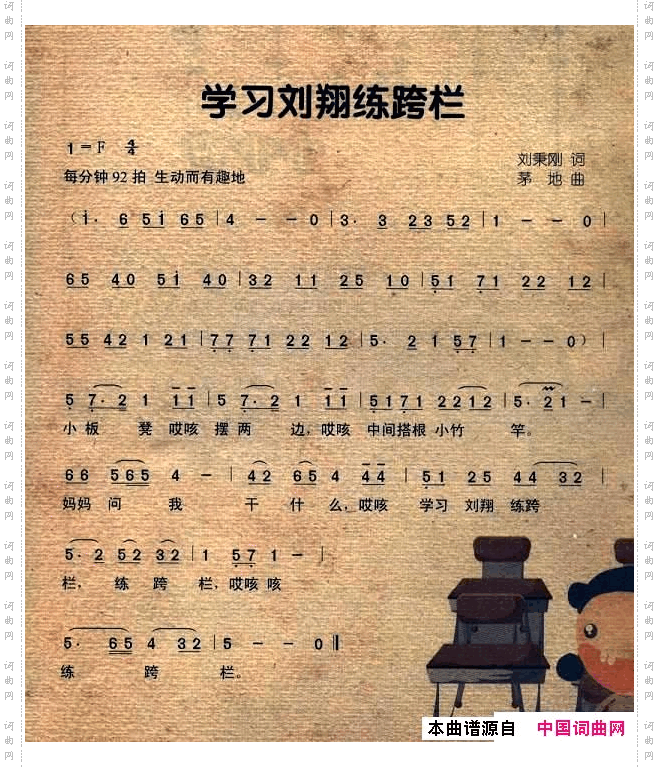 学习刘翔练跨栏
1=F 4/4
刘秉刚 词
每分钟92拍 生动而有趣地
茅 地 曲
(i· 6 5i 65 | 4 - - 0 | 3· 3 23 52 | 1 - - 0 |
65 40 5i 40 | 32 11 25 10 | 51 71 22 12 |
55 42 1 21 | 77 71 22 12 | 5· 2 1 57 | 1 - - 0) |
5 7·2 1 11 | 5 7·2 1 11 | 5171 2212 | 5· 21 - |
小板 凳 哎咳 摆两 边,哎咳 中间搭根 小竹 竿。
66 565 4 - | 42 65 4 44 | 51 25 44 32 |
妈妈 问 我 干 什 么,哎咳 学习 刘翔 练跨
5·2 52 32 | 1 57 1 - |
栏, 练 跨 栏,哎咳 咳
5· 65 4 32 | 5 - - 0 ‖
练 跨 栏。
本曲谱源自 中国词曲网
词曲网